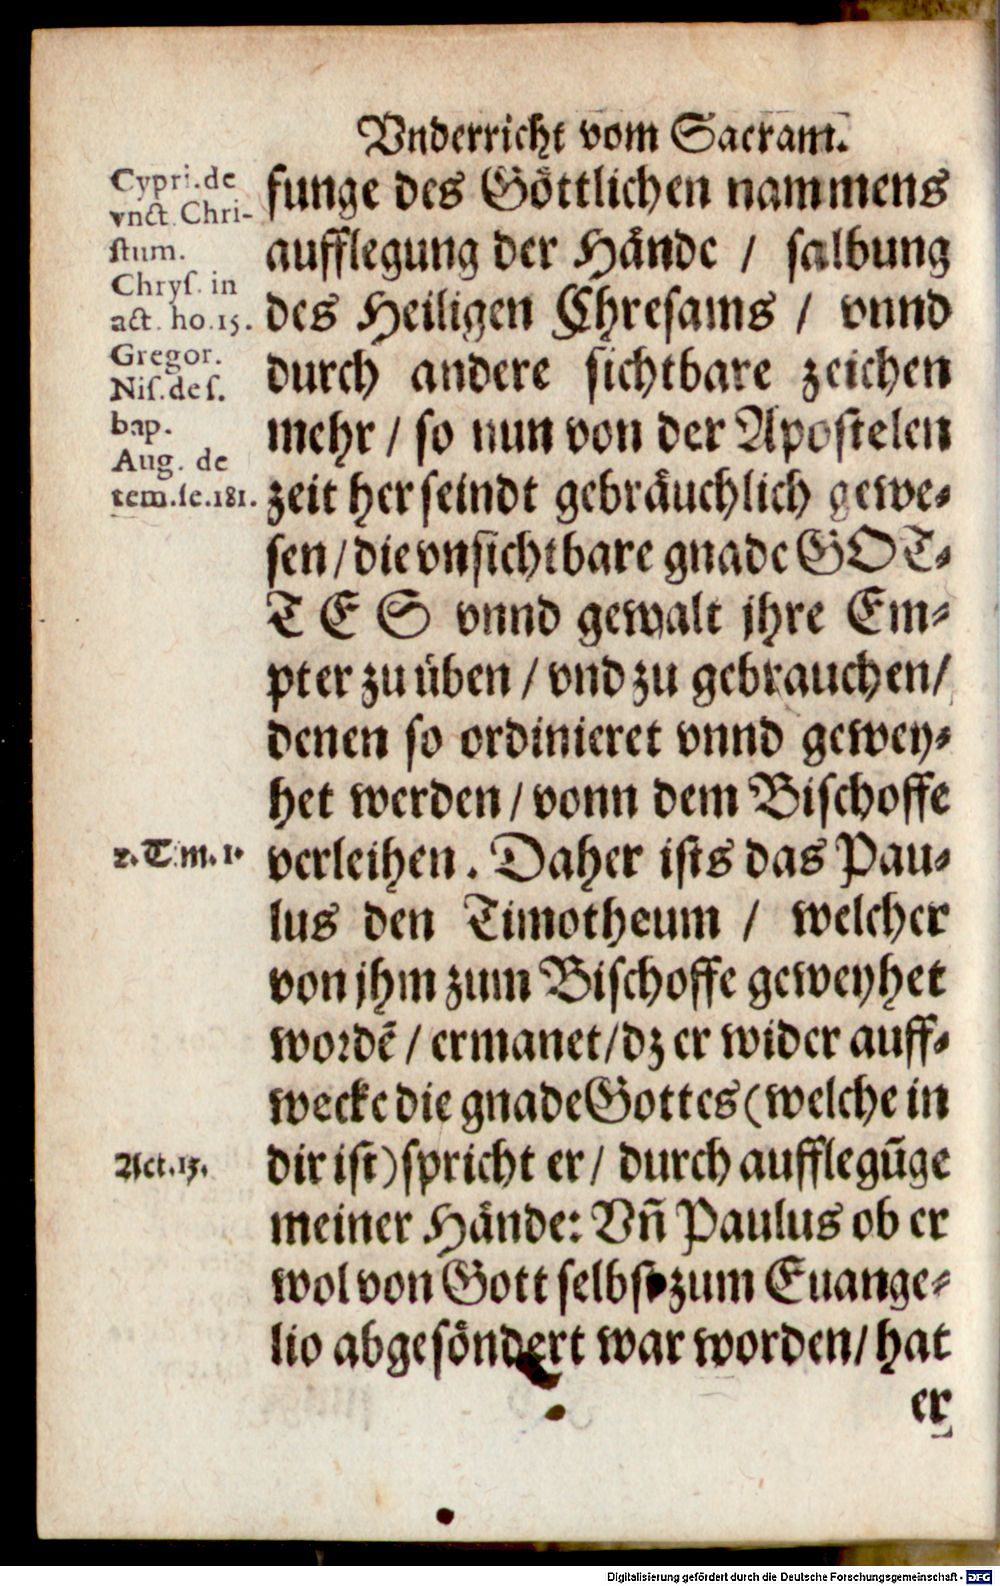 Vnderricht vom Sacram.
Cypri. de
vnct. Chri-
stum.
Chrys. in
act. ho. 15.
Gregor.
Nis. de s.
bap.
Aug. de
tem. se. 181.
funge des Göttlichen nammens
aufflegung der Hände / salbung
des Heiligen Chresams / vnnd
durch andere sichtbare zeichen
mehr / so nun von der Apostelen
zeit her seindt gebräuchlich gewe-
sen / die vnsichtbare gnade GOT-
TES vnnd gewalt jhre Em-
pter zu üben / vnd zu gebrauchen /
denen so ordinieret vnnd gewey-
het werden / vonn dem Bischoffe
2. Tim. 1.
verleihen. Daher ists das Pau-
lus den Timotheum / welcher
von jhm zum Bischoffe geweyhet
wordē / ermanet / dz er wider auff-
wecke die gnade Gottes (welche in
Act. 13.
dir ist) spricht er / durch auffleguūge
meiner Hände: Vñ Paulus ob er
wol von Gott selbst zum Euange-
lio abgesöndert war worden / hat
er
Digitalisierung gefördert durch die Deutsche Forschungsgemeinschaft - DFG